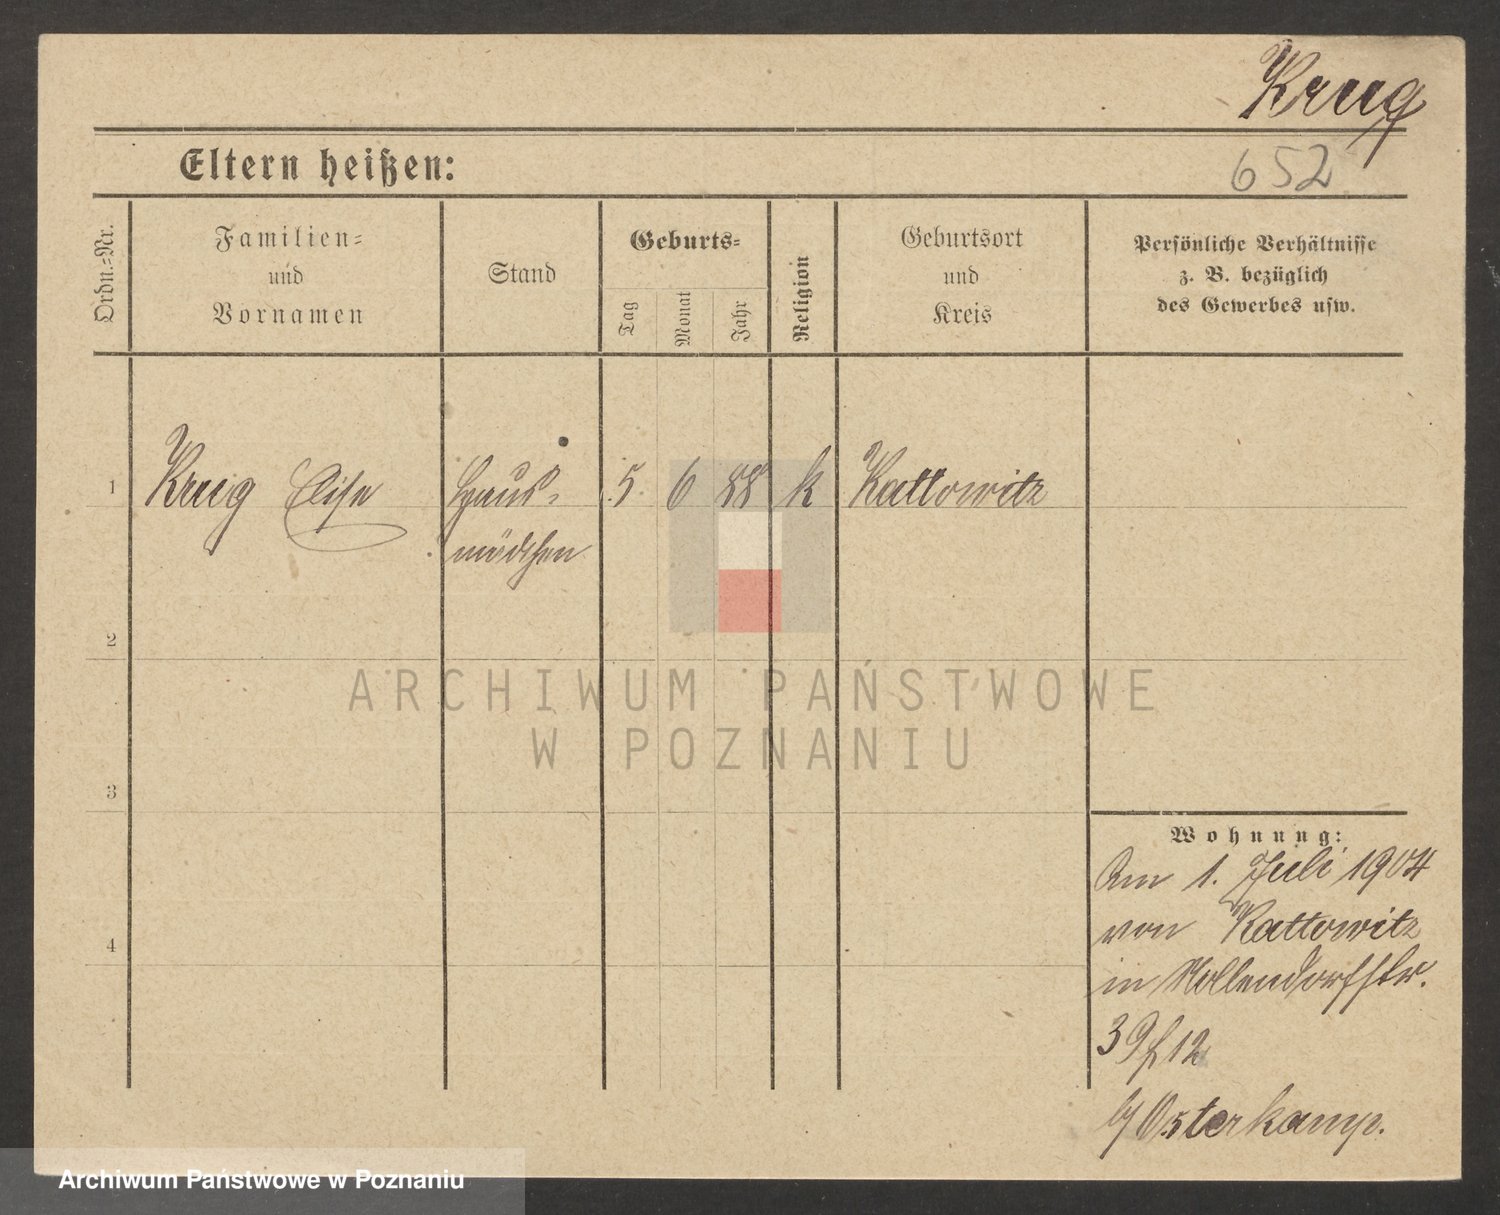 Krug
Eltern heißen:
652
Ordn.-Nr.
Familien-
und
Vornamen
Stand
Geburts-
Tag
Monat
Jahr
Religion
Geburtsort
und
Kreis
Persönliche Verhältnisse
z. B. bezüglich
des Gewerbes usw.
1
Krug Elise
Haus-
mädchen
5
6
88
k
Kattowitz
2
ARCHIWUM PAŃSTWOWE
W POZNANIU
3
Wohnung:
Am 1. Juli 1904
von Kattowitz
in Nollendorfstr.
4
39 12
b/ Osterkamp.
Archiwum Państwowe w Poznaniu